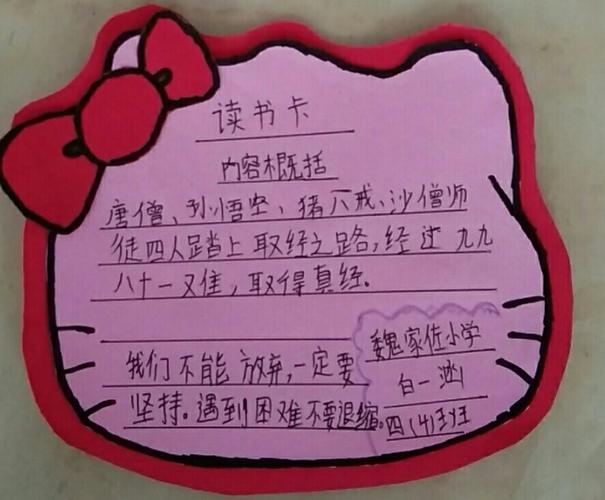 读书卡
内容概括
唐僧、孙悟空、猪八戒、沙僧师
徒四人踏上取经之路,经过九九
八十一难,取得真经。
我们不能放弃,一定要
坚持。遇到困难不要退缩。
魏家佐小学
白一涵
四(4)班